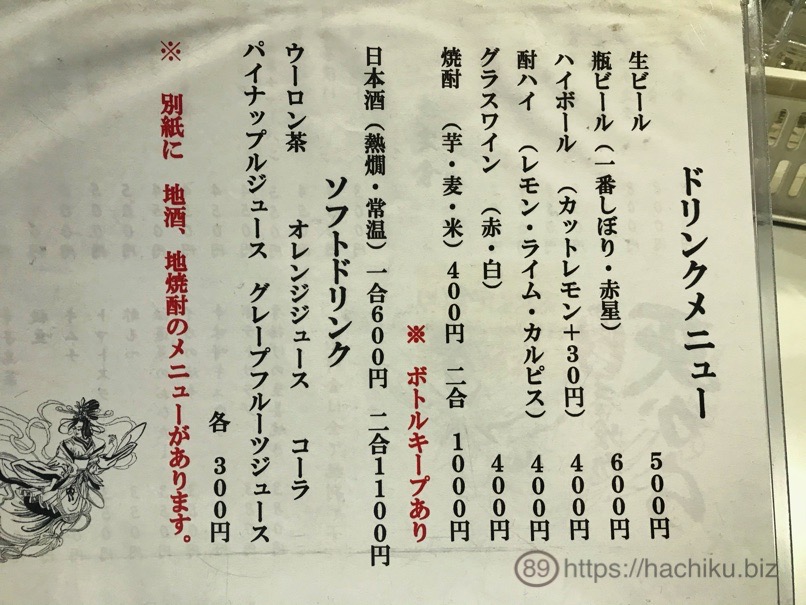 ドリンクメニュー
生ビール 500円
瓶ビール(一番しぼり・赤星) 600円
ハイボール (カットレモン+30円) 400円
酎ハイ (レモン・ライム・カルピス) 400円
グラスワイン (赤・白) 400円
焼酎 (芋・麦・米) 400円 二合 1000円
※ ボトルキープあり
日本酒(熱燗・常温) 一合600円 二合1100円
ソフトドリンク
ウーロン茶 オレンジジュース コーラ
パイナップルジュース グレープフルーツジュース
各 300円
※ 別紙に 地酒、地焼酎のメニューがあります。
89 https://hachiku.biz